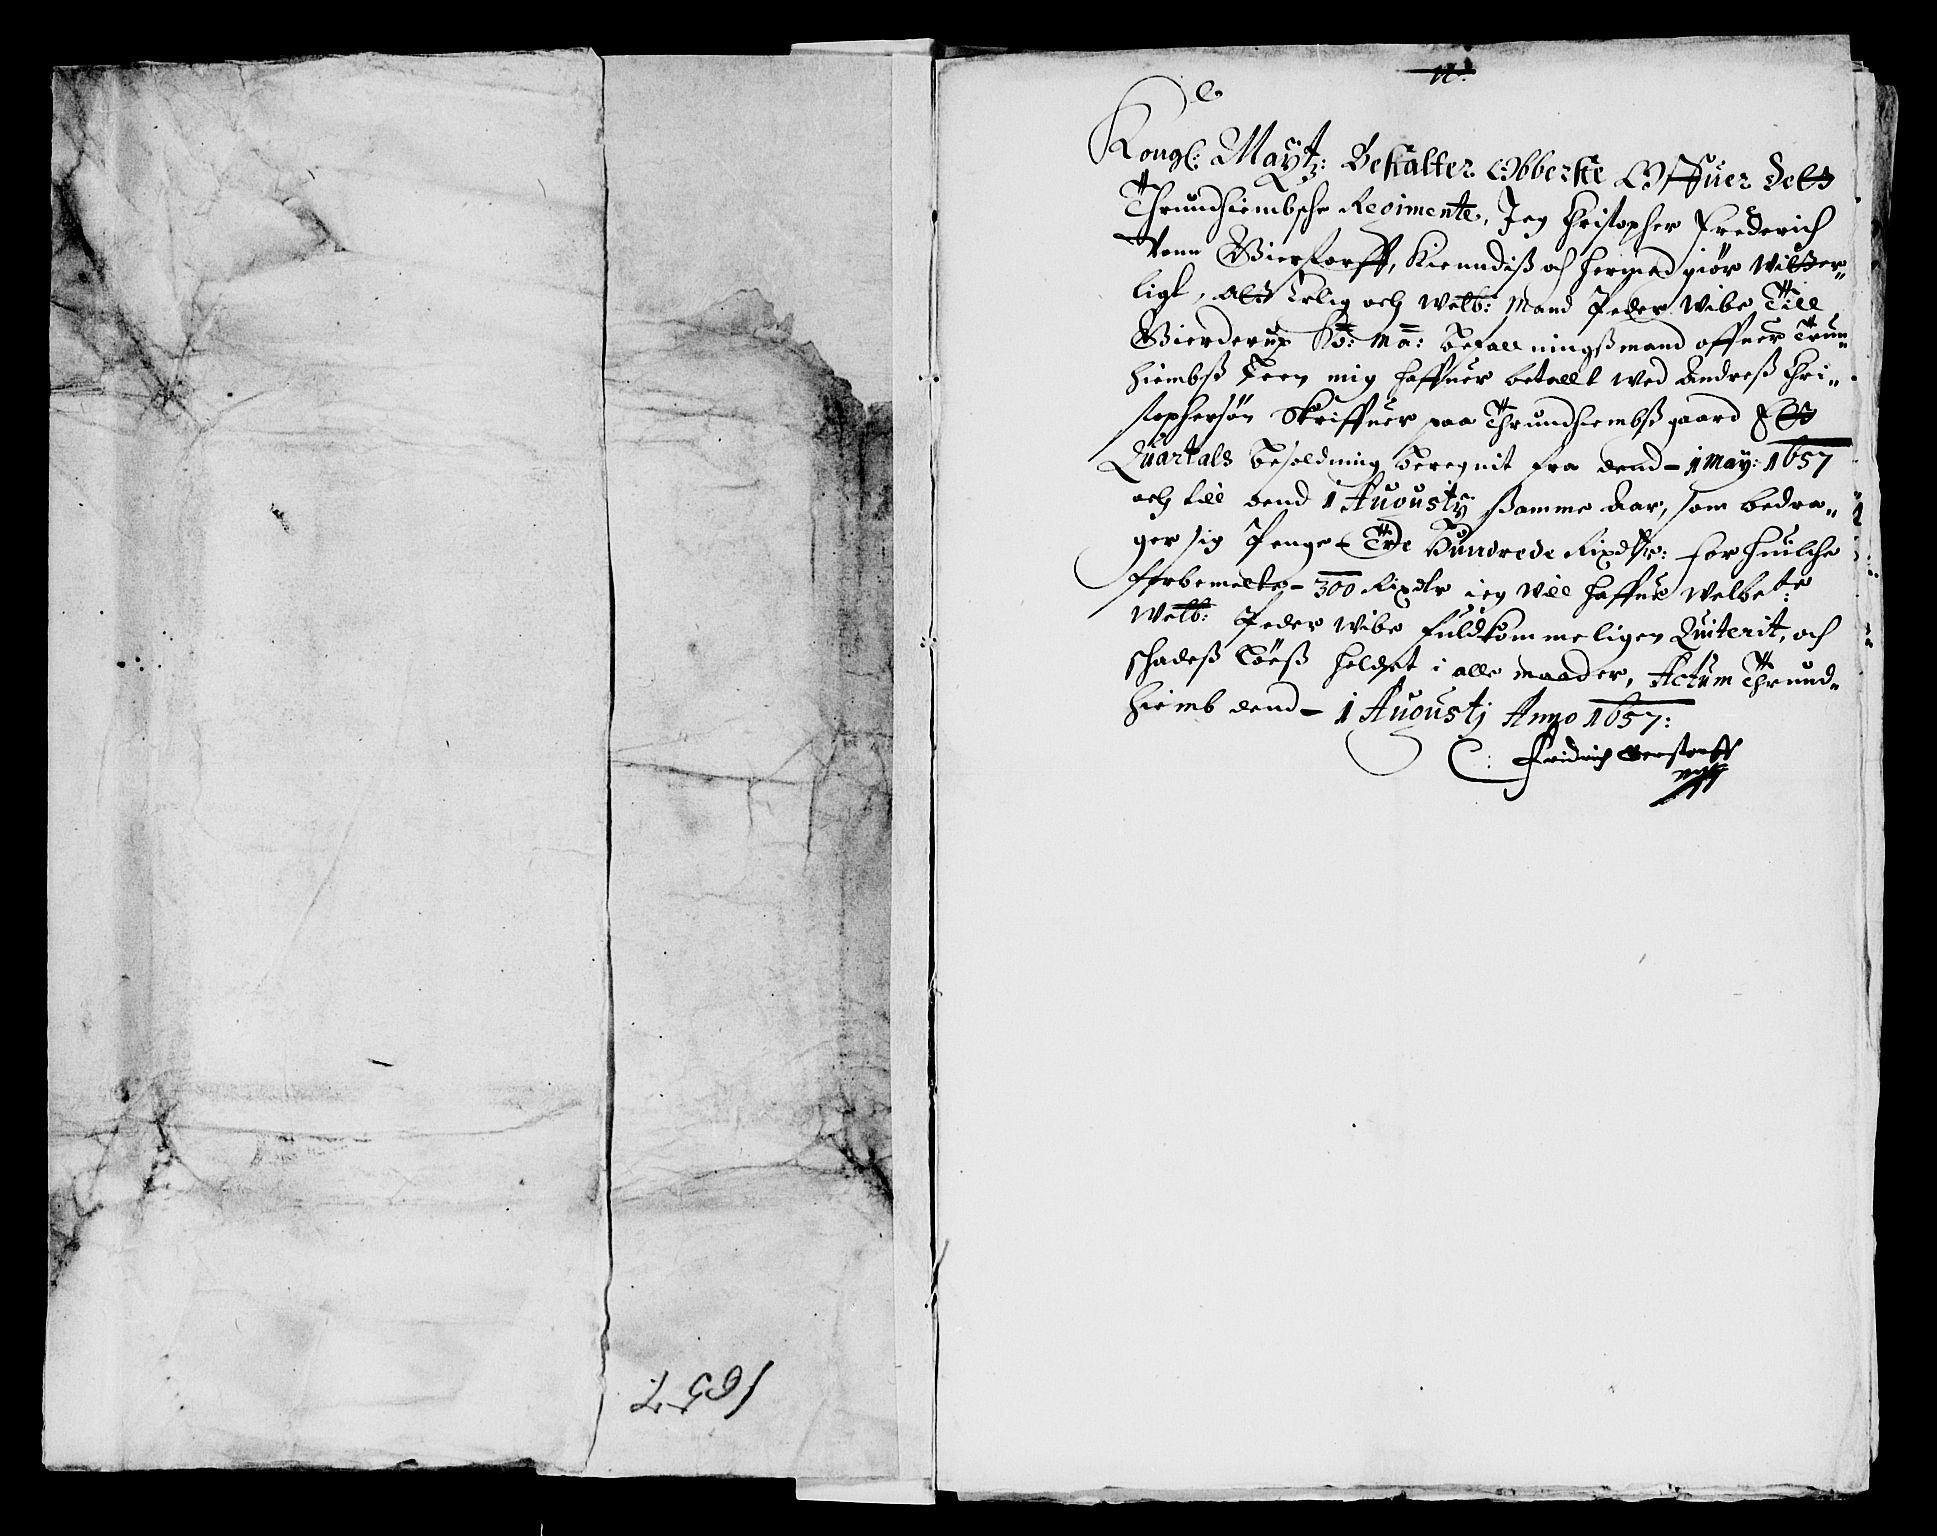 1657.
Kongl: Maytz: Bestalter Obberste Offuer dets
Thrundhiembsche Regimente, Jeg Christopher Frederich
Vonn Bierstorff, Kiendiß och hermed giør witter-
ligt, att Erlig och welb: Mand Peder Wibe Till
Gierderup Ko: Ma: befallningßmand offuer Trun-
hiembß Leen mig haffuer betallt wed Andreß Chri-
stophersøn Skriffuer paa Thrundhiembß gaard Ett
Quartals besoldning beregnit fra dend - 1 May: 1657
och till dend 1 Augusty ßamme Aar, som bedra-
ger sig Penge - Tre Hundrede Rixdlr: for huilche
forbemelte - 300 Rixdlr ieg will haffue welbete:
Welb: Peder Wibe fuldkommeligen Quiterit, och
schadeß Løeß holdet i alle maader, Actum Thrund-
hiemb dend - 1 Augustj Anno 1657:
C: Fridrich Berstorff
mp